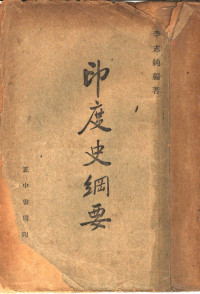 李志純編著
印度史綱要
正中書局印